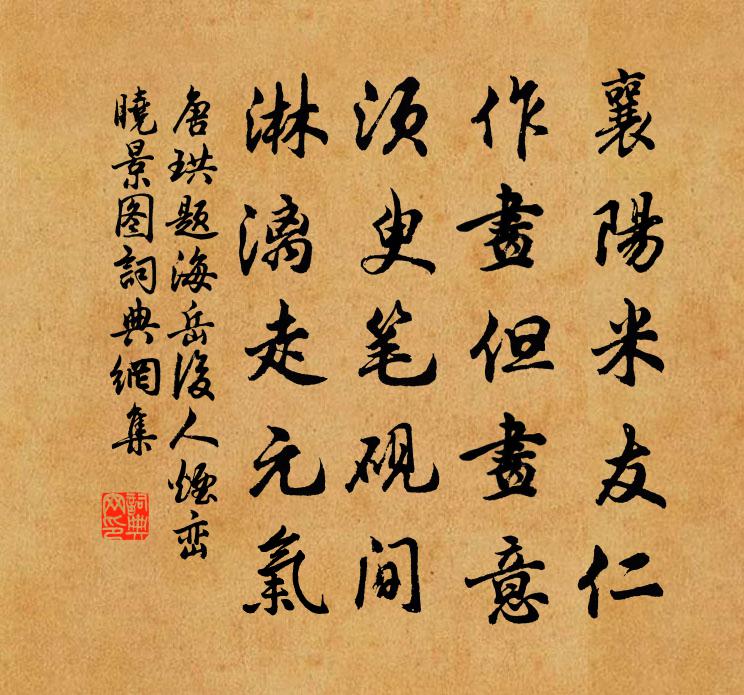 襄陽米友仁
作畫但畫意
須臾笔砚间
淋漓走元氣
唐珙题海岳後人煙峦
曉景图詞典網集
詞典網印